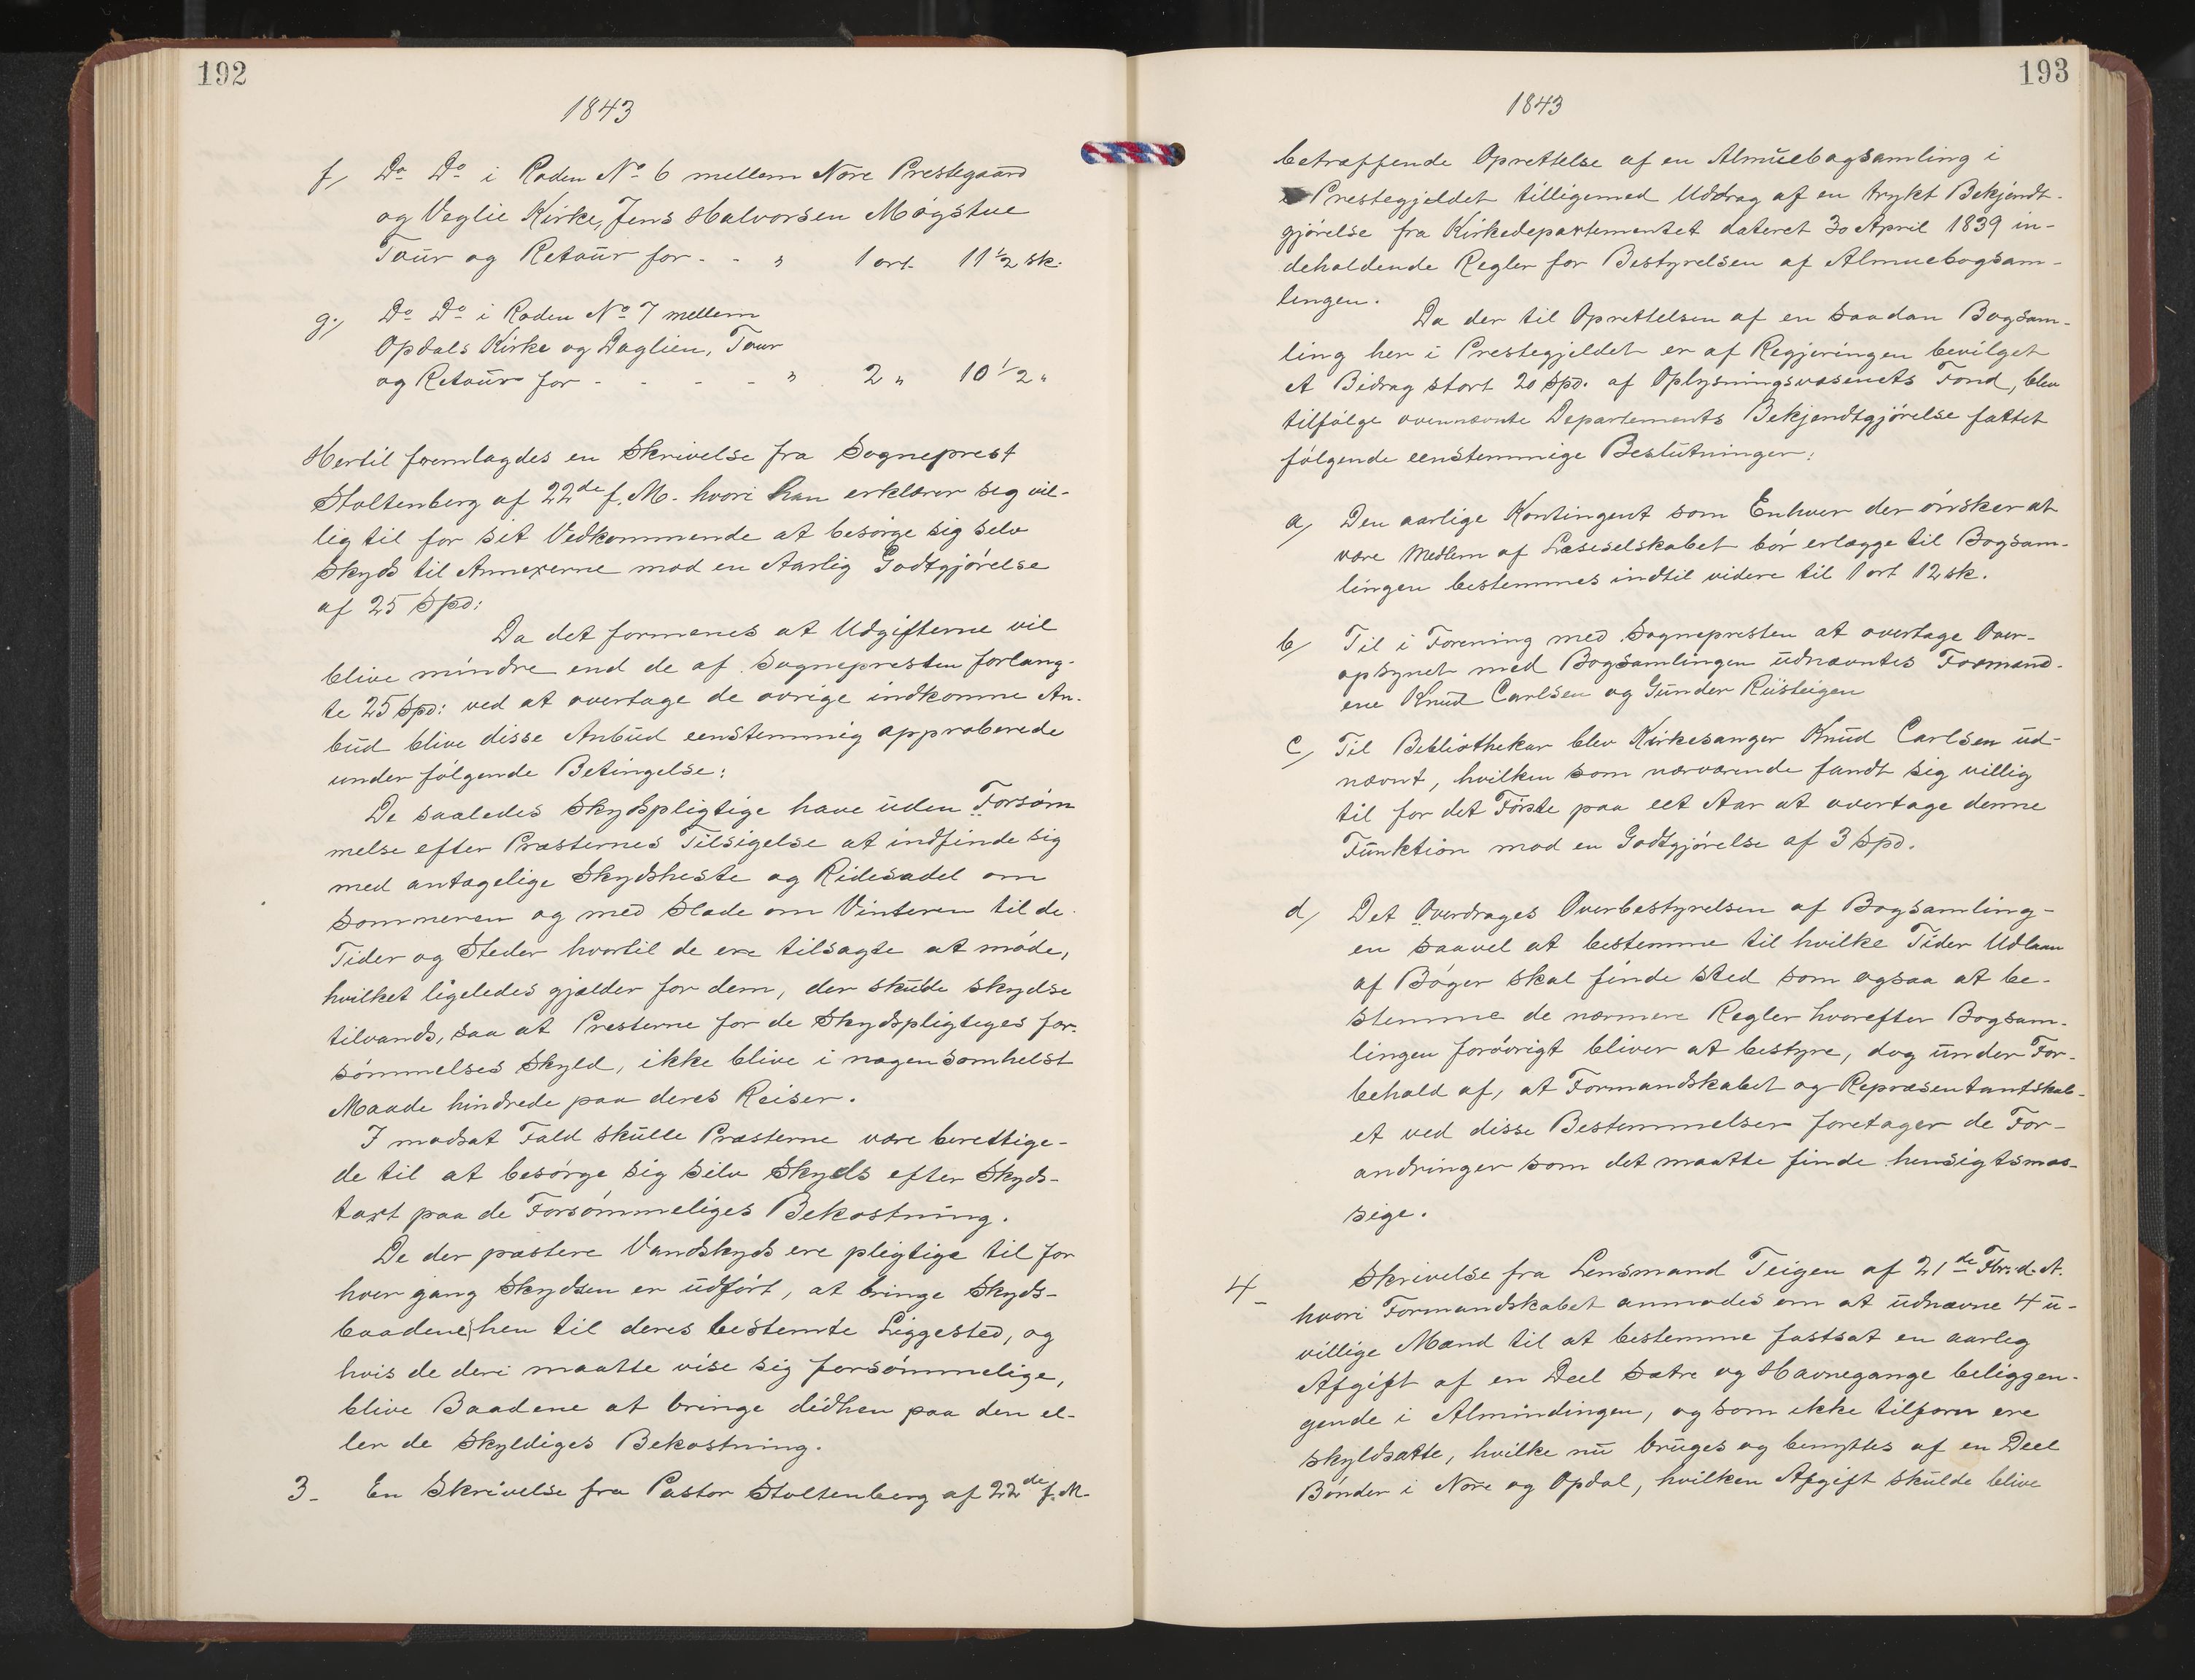 192
1843
f, Do Do i Roden No 6 mellem Nore Prestegaard
og Veglie Kirke, Jens Halvorsen Møgstue
Tour og Retour for - - " 1 ort. 11 1/2 sk.
g., Do Do i Roden No 7 mellem
Opdals Kirke og Daglien, Tour
og Retour for - - - - " 2 " 10 1/2 "
Hertil fremlagdes en Skrivelse fra Sogneprest
Stoltenberg af 22de f. M. hvori han erklærer sig vil-
lig til for sit Vedkommende at besørge sig selv
Skyds til Annexerne mod en Aarlig Godtgjørelse
af 25 Spd:
Da det formenes at Udgifterne vil
blive mindre end de af Sognepresten forlang-
te 25 Spd: ved at overtage de øvrige indkomne An-
bud blive disse Anbud eenstemmig approberede
under følgende Betingelse:
De saaledes Skydspligtige have uden Forsøm
melse efter Præsternes Tilsigelse at indfinde sig
med antagelige Skydsheste og Ridesadel om
Sommeren og med Slæde om Vinteren til de
Tider og Steder hvortil de ere tilsagte at møde,
hvilket ligeledes gjælder for dem, der skulde skydse
tilvands, saa at Presterne for de Skydspligtiges for-
sømmelses Skyld, ikke blive i nogensomhelst
Maade hindrede paa deres Reiser.
I modsat Fald skulle Præsterne være berettige-
de til at besørge sig selv Skyds efter Skyds-
taxt paa de Forsømmeliges Bekostning.
De der præstere Vandskyds ere pligtige til for
hver gang Skydsen er udført, at bringe Skyds-
baadene hen til deres bestemte Liggested, og
hvis de deri maatte vise sig forsømmelige,
blive Baadene at bringe didhen paa den el-
ler de Skyldiges Bekostning.
3- En Skrivelse fra Pastor Stoltenberg af 22de f. M-
193
1843
betræffende Oprettelse af en Almuebogsamling i
Prestegjeldet tilligemed Uddrag af en trykt Bekjendt-
gjørelse fra Kirkedepartementet dateret 30 April 1839 in-
deholdende Regler for Bestyrelsen af Almuebogsam-
lingen.
Da der til Oprettelsen af en saadan Bogsam-
ling her i Prestegjeldet er af Regjeringen bevilget
et Bidrag stort 20 Spd. af Oplysningsvæsenets Fond, blev
tilfølge ovennævnte Departements Bekjendtgjørelse fattet
følgende eenstemmige Beslutninger:
a, Den aarlige Kontingent som Enhver der ønsker at
være Medlem af Læseselskabet bør erlægge til Bogsam-
lingen bestemmes indtil videre til 1 ort 12 sk.
b, Til i Forening med Sognepresten at overtage Over-
opsynet med Bogsamlingen udnævntes Formænd-
ene Knud Carlsen og Gunder Rusteigen
c, Til Bibliothekar blev Kirkesanger Knud Carlsen ud-
nævnt, hvilken som nærværende fandt sig villig
til for det Første paa eet Aar at overtage denne
Funktion mod en Godtgjørelse af 3 Spd.
d, Det Overdrages Overbestyrelsen af Bogsamling-
en saavel at bestemme til hvilke Tider Udlaan
af Bøger skal finde sted som ogsaa at be-
stemme de nærmere Regler hvorefter Bogsam-
lingen forøvrigt bliver at bestyre, dog under For-
behold af, at Formandskabet og Repræsentantskab-
et ved disse Bestemmelser foretager de For-
andringer som det maatte finde hensigtsmæs-
sige.
4- Skrivelse fra Lensmand Teigen af 21de Fbr. d. A.
hvori Formandskabet anmodes om at udnævne 4 u-
villige Mænd til at bestemme fastsat en aarlig
Afgift af en Deel Sætre og Havnegange beliggen-
gende i Almindingen, og som ikke tilforn ere
skyldsatte, hvilke nu bruges og benyttes af en Deel
Bønder i Nore og Opdal, hvilken Afgift skulde blive